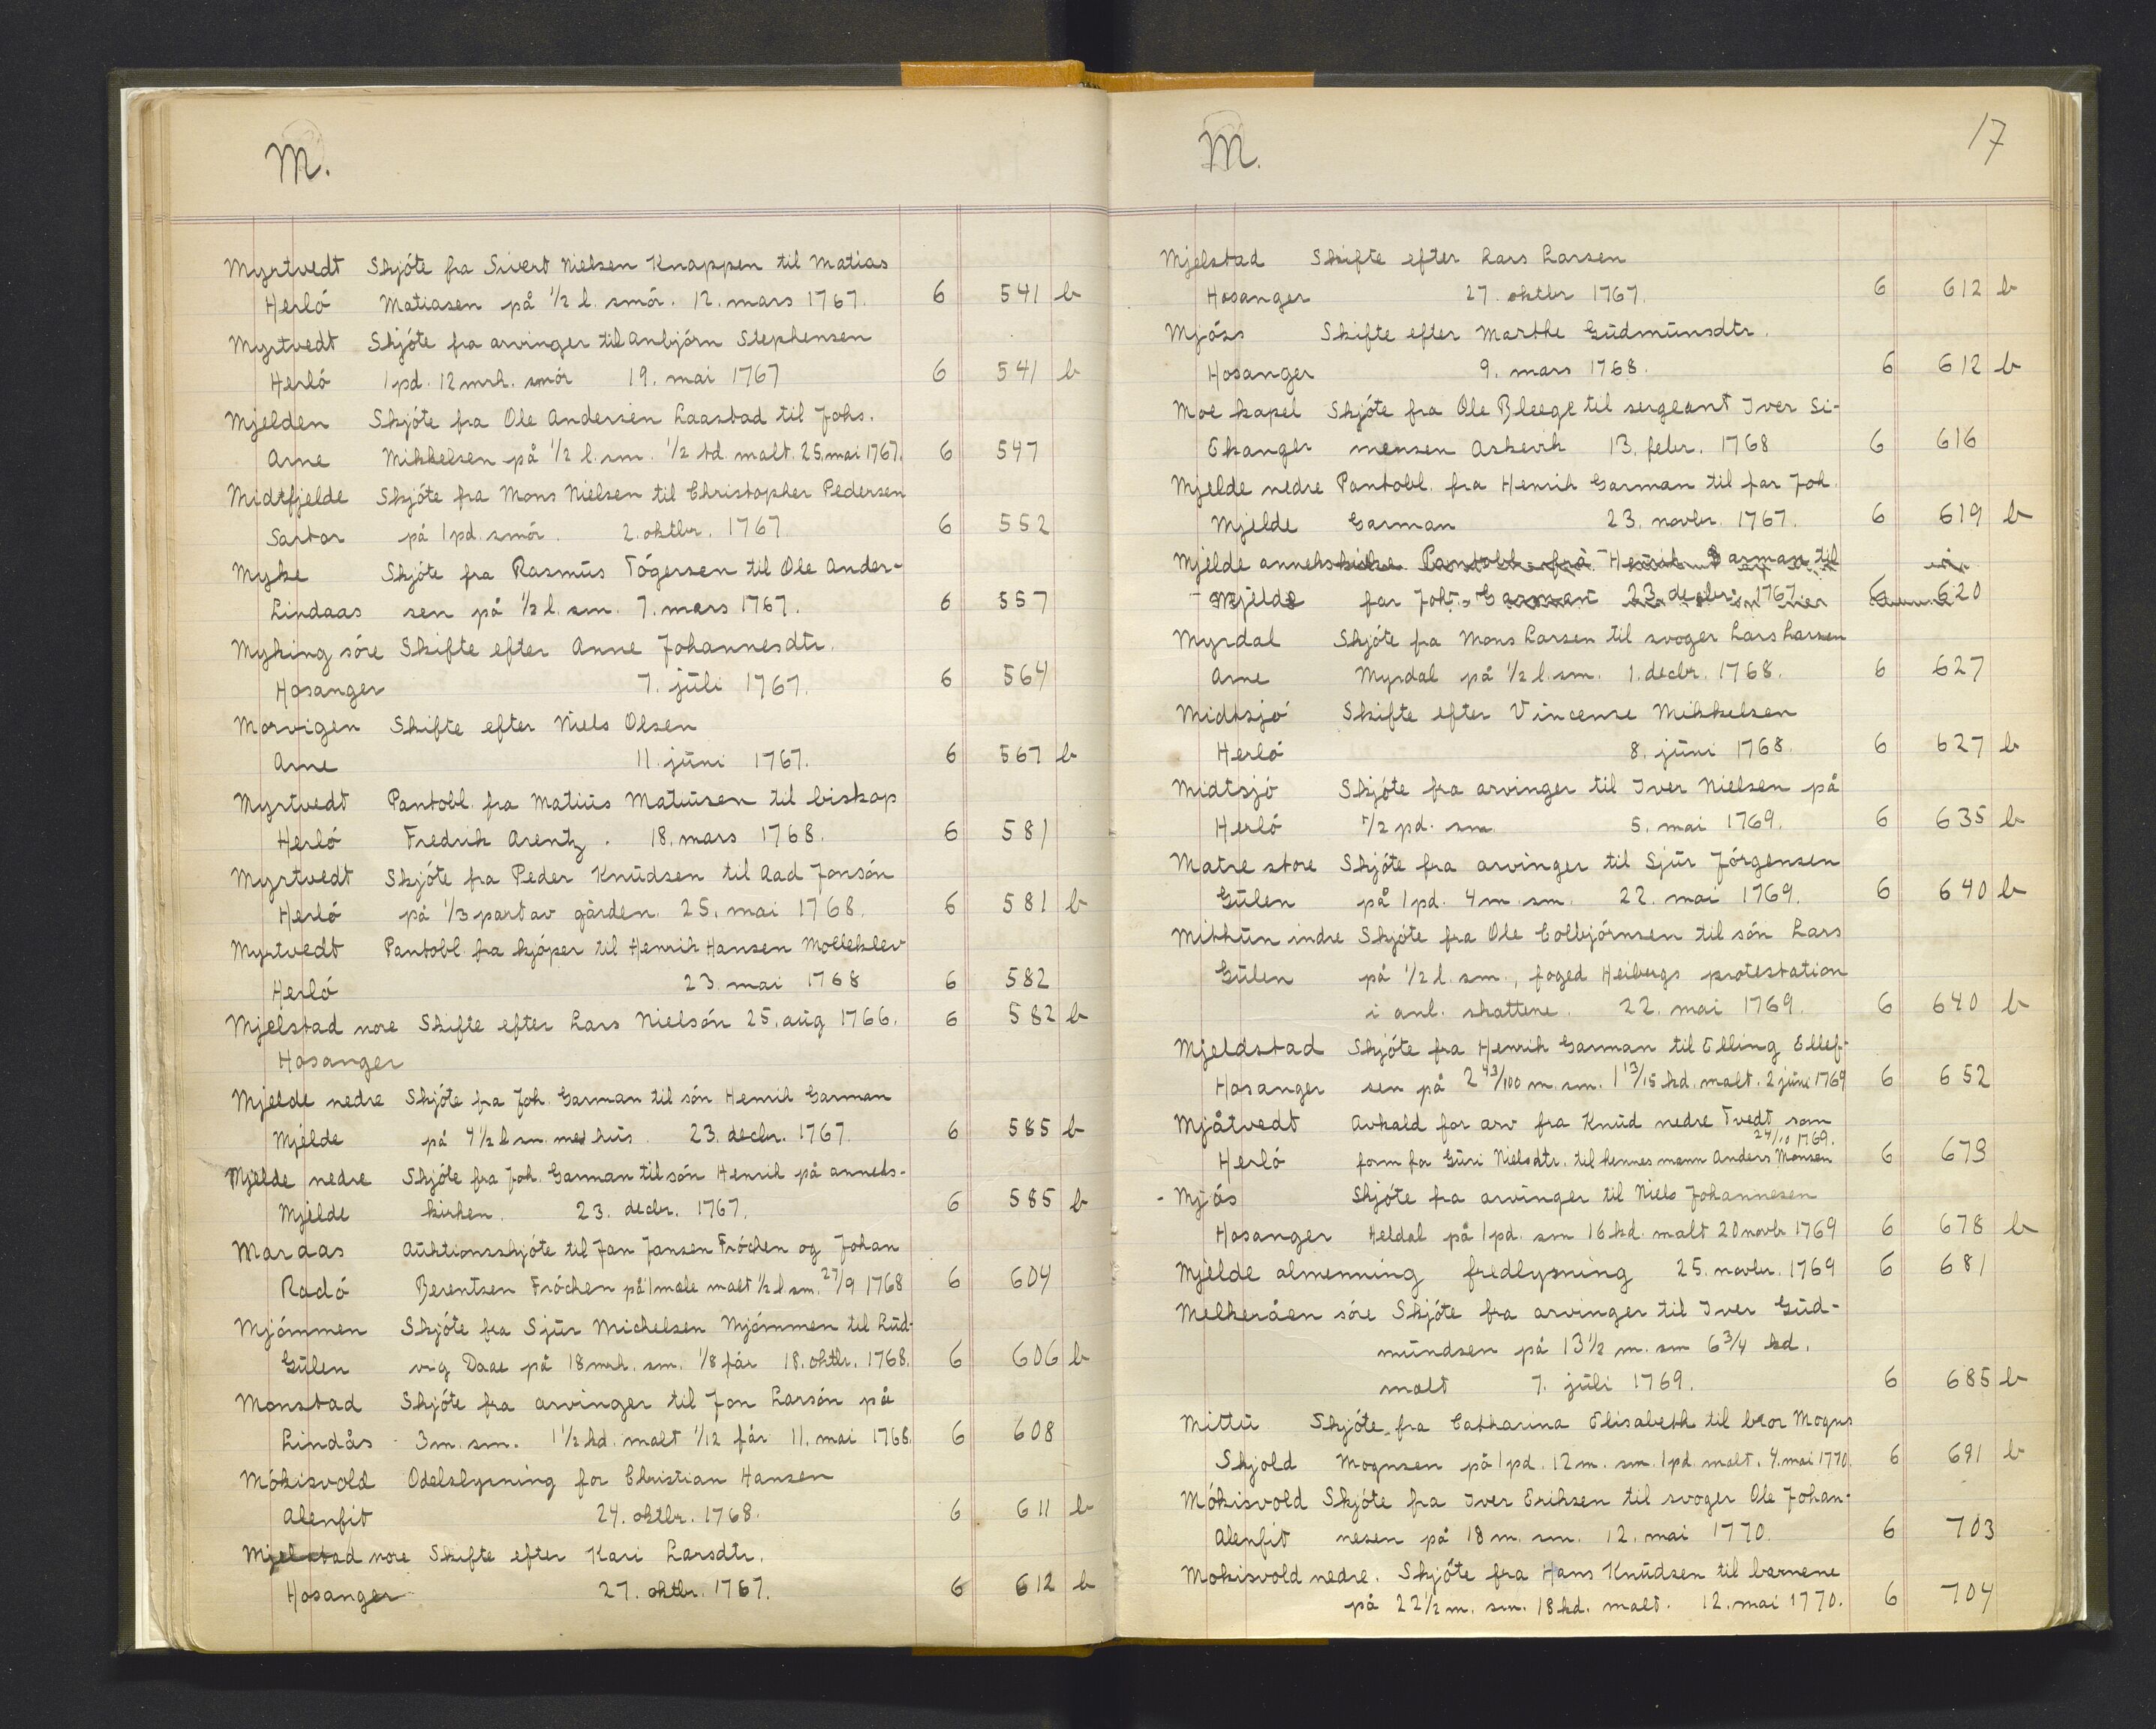 M.
Myrtvedt Skjóte fra Sivert Nielsen Knappen til Matias
Herló Matiasen på 1/2 l. smór. 12. mars 1767. 6 541 b
Myrtvedt Skjóte fra arvinger til Anbjórn Stephensen
Herló 1 pd. 12 mrk. smór 19. mai 1767 6 541 b
Mjelden Skjóte fra Ole Andersen Laastad til Johs.
Arne Mikkelsen på 1/2 l. sm. 1/2 td. malt. 25. mai 1767. 6 547
Midtfjelde Skjóte fra Mons Nielsen til Christopher Pedersen
Sartor på 1 pd. smór. 2. oktbr. 1767 6 552
Myke Skjóte fra Rasmus Tógersen til Ole Ander-
Lindaas sen på 1/2 l. sm. 7. mars 1767. 6 557
Myking sóre Skifte efter Anne Johannesdtr.
Hosanger 7. juli 1767. 6 564
Morvigen Skifte efter Niels Olsen
Arne 11. juni 1767. 6 567 b
Myrtvedt Pantobl. fra Matius Matiusen til biskop
Herló Fredrik Arentz. 18. mars 1768. 6 581
Myrtvedt Skjóte fra Peder Knudsen til Aad Jonsón
Herló på 1/3 part av gården. 25. mai 1768. 6 581 b
Myrtvedt Pantobl. fra kjóper til Henrik Hansen Mollekler
Herló 23. mai 1768 6 582
Mjelstad nore Skifte efter Lars Nielsón 25. aug 1766. 6 582 b
Hosanger
Mjelde nedre Skjóte fra Joh. Garman til són Henrik Garman
Mjelde på 4 1/2 l sm. med hus. 23. decbr. 1767. 6 585 b
Mjelde nedre Skjóte fra Joh. Garman til són Henrik på anneks-
Mjelde kirken. 23. decbr. 1767. 6 585 b
Maraas Auktionsskjóte til Jan Jansen Fróchen og Johan
Radó Berentsen Fróchen på 1 møle malt 1/2 l. sm. 27/9 1768 6 604
Mjómmen Skjóte fra Sjur Michelsen Mjómmen til Lud-
Gulen vig Daae på 18 mrk. sm. 1/8 får 18. oktbr. 1768. 6 606 b
Monstad Skjóte fra arvinger til Jon Larsón på
Lindås 3 m. sm. 1 1/2 kd. malt 1/12 får 11. mai 1768. 6 608
Mókisvold Odelslysning for Christian Hansen
Alenfit 24. oktbr. 1768. 6 611 b
Mjelstad nore Skifte efter Kari Larsdtr.
Hosanger 27. oktbr. 1767. 6 612 b
M. 17
Mjelstad Skifte efter Lars Larsen
Hosanger 27. oktbr 1767. 6 612 b
Mjóss Skifte efter Marthe Gudmunsdtr.
Hosanger 9. mars 1768. 6 612 b
Moe kapel Skjóte fra Ole Bleege til sergeant Iver Si-
Ekanger mensen Askevik 13. febr. 1768 6 616
Mjelde nedre Pantobl. fra Henrik Garman til far Joh.
Mjelde Garman 23. novbr. 1767. 6 619 b
Mjelde annekskirke Pantobl. fra Henrik Garman til
Mjelde far Joh. Garman 23. decbr. 1767 6 620
Myrdal Skjóte fra Mons Larsen til svoger Lars Larsen
Arne Myrdal på 1/2 l. sm. 1. decbr. 1768. 6 627
Midtsjó Skifte efter Vincense Mikkelsen
Herló 8. juni 1768. 6 627 b
Midtsjó Skjóte fra arvinger til Iver Nielsen på
Herló 1/2 pd. sm. 5. mai 1769. 6 635 b
Matre store Skjóte fra arvinger til Sjur Jórgensen
Gulen på 1 pd. 4 m. sm. 22. mai 1769. 6 640 b
Mitkun indre Skjóte fra Ole Colbjórnsen til són Lars
Gulen på 1/2 l. sm., foged Heibergs protestation
i anl. skattene. 22. mai 1769. 6 640 b
Mjeldstad Skjóte fra Henrik Garman til Elling Ellef-
Hosanger sen på 2 43/100 m. sm. 1 13/15 kd. malt. 2 juni 1769 6 652
Mjåtvedt Avkald for arv fra Knud nedre Tvedt som
24/10 1769.
Herló form for Guri Nielsdtr. til hennes mann Anders Monsen 6 673
- Mjós Skjóte fra arvinger til Niels Johannesen
Hosanger Heldal på 1 pd. sm 16 kd. malt 20 novbr 1769 6 678 b
Mjelde almenning fredlysning 25. novbr. 1769 6 681
Melkeråen sóre Skjóte fra arvinger til Iver Gud-
mundsen på 13 1/2 m. sm 6 3/4 kd.
malt 7. juli 1769. 6 685 b
Mittu Skjóte fra Catharina Elisabeth til bror Mogns
Skjold Mognsen på 1 pd. 12 m. sm. 1 pd. malt. 4. mai 1770. 6 691 b
Mókisvold Skjóte fra Iver Eriksen til svoger Ole Johan-
Alenfit nesen på 18 m. sm. 12. mai 1770. 6 703
Mokisvold nedre. Skjóte fra Hans Knudsen til barnene
på 22 1/2 m. sm. 18 kd. malt. 12. mai 1770. 6 704